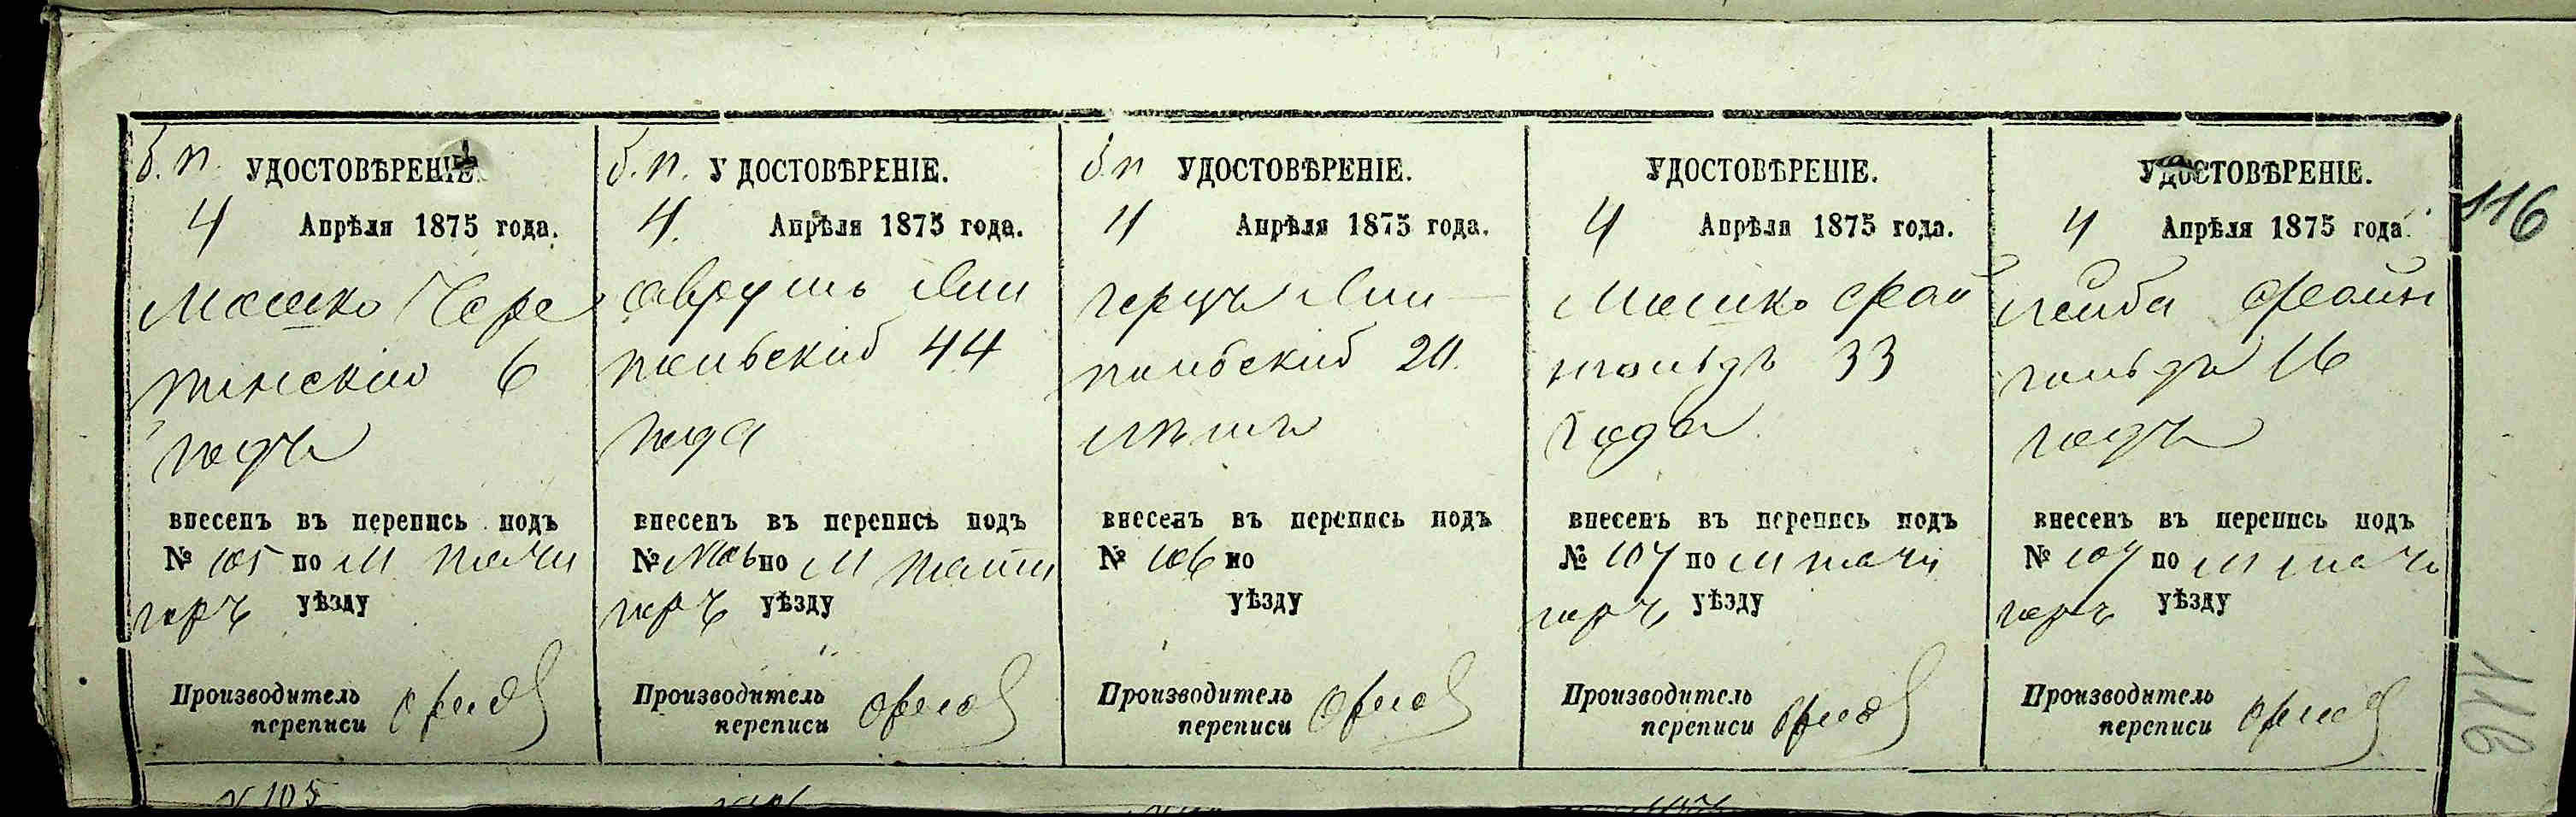 116
б. п. УДОСТОВѢРЕНІЕ.
4 Апрѣля 1875 года.
Мошко Чере
пинский 6
годъ
внесенъ въ перепись подъ
№ 105 по М
уѣзду
Производитель
переписи Орлов
№ 105
б. п. УДОСТОВѢРЕНІЕ.
4. Апрѣля 1875 года.
Аврумъ Лип
польский 44
года
внесенъ въ перепись подъ
№ 106 по М
уѣзду
Производитель
переписи Орлов
б п УДОСТОВѢРЕНІЕ.
4 Апрѣля 1875 года.
Герцъ Лип-
польский 20
лѣтъ
внесенъ въ перепись подъ
№ 106 по
уѣзду
Производитель
переписи Орлов
УДОСТОВѢРЕНІЕ.
4 Апрѣля 1875 года.
Мошко Фай
нгольдъ 33
года
внесенъ въ перепись подъ
№ 107 по М
уѣзду
Производитель
переписи Орлов
УДОСТОВѢРЕНІЕ.
4 Апрѣля 1875 года.
Лейба Файн
гольдъ 16
годъ
внесенъ въ перепись подъ
№ 107 по М
уѣзду
Производитель
переписи Орлов
116